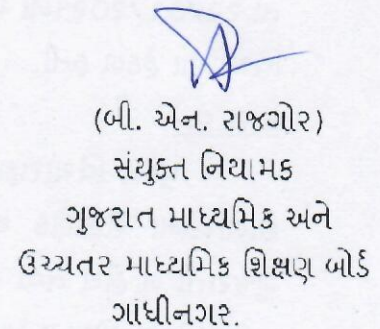 (બી. એન. રાજગોર)
સંયુક્ત નિયામક
ગુજરાત માધ્યમિક અને
ઉચ્ચતર માધ્યમિક શિક્ષણ બોર્ડ
ગાંધીનગર.